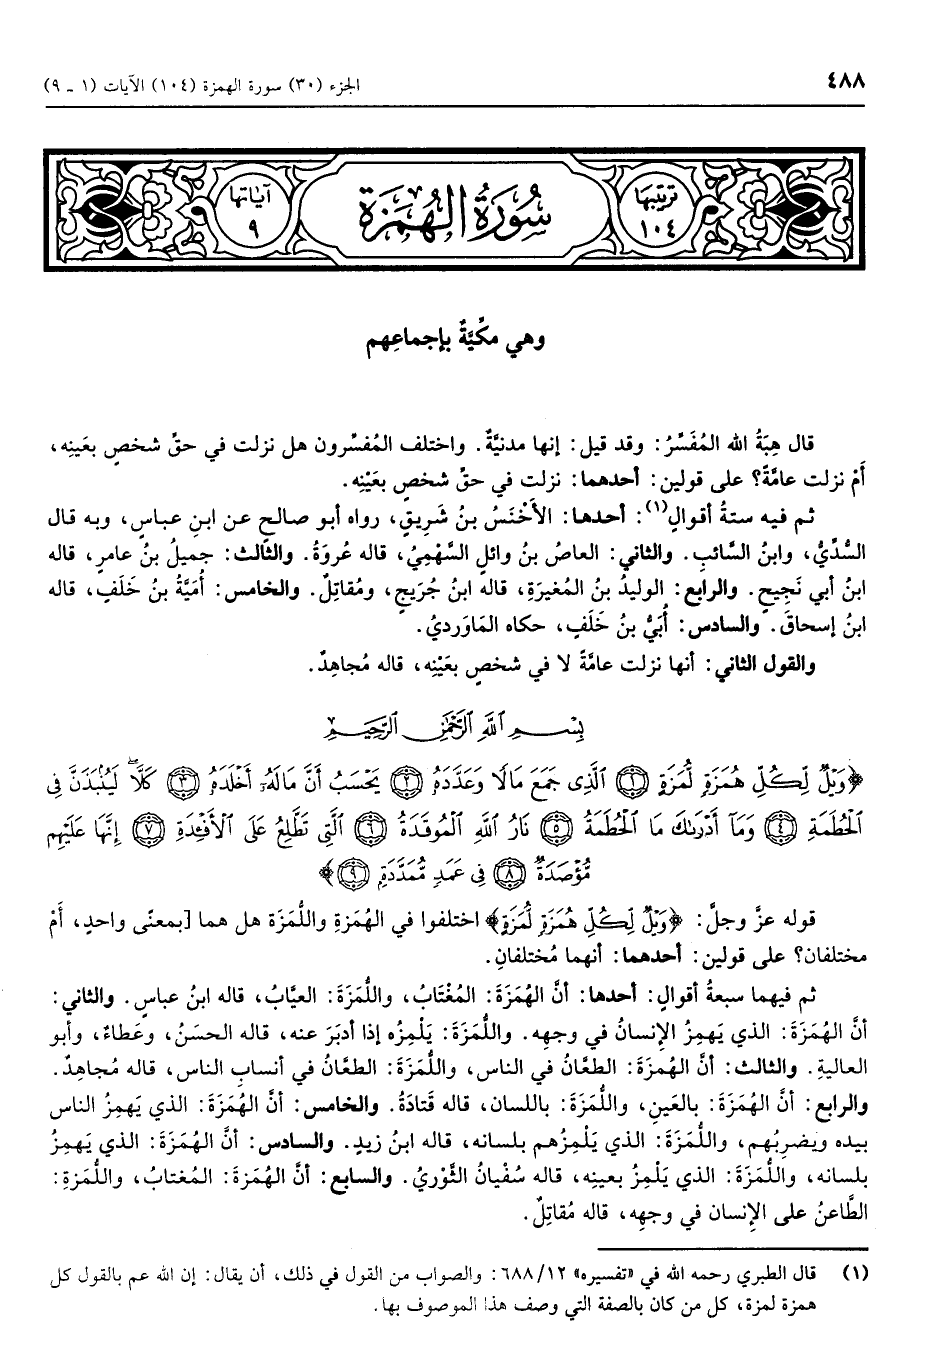 ٤٨٨
الجزء (٣٠) سورة الهمزة (١٠٤) الآيات (١ ـ ٩)
ترتيبها ١٠٤
سُورَةُ الهُمَزَةِ
آياتها ٩
وهي مكِّيَّةٌ بإجماعِهم
قال هِبَةُ الله المُفَسِّرُ: وقد قيل: إنها مدنيَّةٌ. واختلف المُفسِّرون هل نزلت في حقِّ شخصٍ بعَينِه،
أَمْ نزلت عامَّةً؟ على قولين: أحدهما: نزلت في حقِّ شخصٍ بعَيْنِه.
ثم فيه ستةُ أقوالٍ(١): أحدها: الأَخْنَسُ بنُ شَرِيقٍ، رواه أبو صالحٍ عن ابنِ عباسٍ، وبه قال
السُّدِّيُّ، وابنُ السَّائبِ. والثاني: العاصُ بنُ وائلٍ السَّهْمِيُّ، قاله عُروَةُ. والثالث: جميلُ بنُ عامرٍ، قاله
ابنُ أبي نَجِيحٍ. والرابع: الوليدُ بنُ المُغيرَةِ، قاله ابنُ جُرَيجٍ، ومُقاتِلٌ. والخامس: أُمَيَّةُ بنُ خَلَفٍ، قاله
ابنُ إسحاقَ. والسادس: أُبَيُّ بنُ خَلَفٍ، حكاه المَاوَرديُّ.
والقول الثاني: أنها نزلت عامَّةً لا في شخصٍ بعَيْنِه، قاله مُجاهِدٌ.
بِسْمِ ٱللَّهِ ٱلرَّحْمَٰنِ ٱلرَّحِيمِ
﴿وَيْلٌ لِّكُلِّ هُمَزَةٍ لُّمَزَةٍ ۝١ ٱلَّذِى جَمَعَ مَالًا وَعَدَّدَهُۥ ۝٢ يَحْسَبُ أَنَّ مَالَهُۥٓ أَخْلَدَهُۥ ۝٣ كَلَّا ۖ لَيُنۢبَذَنَّ فِى
ٱلْحُطَمَةِ ۝٤ وَمَآ أَدْرَىٰكَ مَا ٱلْحُطَمَةُ ۝٥ نَارُ ٱللَّهِ ٱلْمُوقَدَةُ ۝٦ ٱلَّتِى تَطَّلِعُ عَلَى ٱلْأَفْـِٔدَةِ ۝٧ إِنَّهَا عَلَيْهِم
مُّؤْصَدَةٌ ۝٨ فِى عَمَدٍ مُّمَدَّدَةٍۭ ۝٩﴾
قوله عزَّ وجلَّ: ﴿وَيْلٌ لِّكُلِّ هُمَزَةٍ لُّمَزَةٍ﴾ اختلفوا في الهُمَزةِ واللُّمَزَة هل هما [بمعنًى واحدٍ، أَمْ
مختلفان؟ على قولين: أحدهما: أنهما مُختلفانِ.
ثم فيهما سبعةُ أقوالٍ: أحدها: أنَّ الهُمَزَةَ: المُغْتَابُ، واللُّمَزَةَ: العيَّابُ، قاله ابنُ عباسٍ. والثاني:
أنَّ الهُمَزَةَ: الذي يَهمِزُ الإنسانُ في وجهِه. واللُّمَزَةَ: يَلْمِزُه إذا أدبَرَ عنه، قاله الحسَنُ، وعَطاءٌ، وأبو
العاليةِ. والثالث: أنَّ الهُمَزَةَ: الطعَّانُ في الناس، واللُّمَزَةَ: الطعَّانُ في أنسابِ الناس، قاله مُجاهِدٌ.
والرابع: أنَّ الهُمَزَةَ: بالعَينِ، واللُّمَزَةَ: باللسان، قاله قَتادَةُ. والخامس: أنَّ الهُمَزَةَ: الذي يَهمِزُ الناس
بيده ويضرِبُهم، واللُّمَزَةَ: الذي يَلْمِزُهم بلسانه، قاله ابنُ زيدٍ. والسادس: أنَّ الهُمَزَةَ: الذي يَهمِزُ
بلسانه، واللُّمَزَةَ: الذي يَلْمِزُ بعينِه، قاله سُفْيانُ الثَّوْرِيُّ. والسابع: أنَّ الهُمَزةَ: المُغتابُ، واللُّمَزةِ:
الطَّاعنُ على الإنسان في وجهِه، قاله مُقاتِلٌ.
(١) قال الطبري رحمه الله في «تفسيره» ١٢/ ٦٨٨: والصواب من القول في ذلك، أن يقال: إن الله عم بالقول كل
همزة لمزة، كل من كان بالصفة التي وصف هذا الموصوف بها.